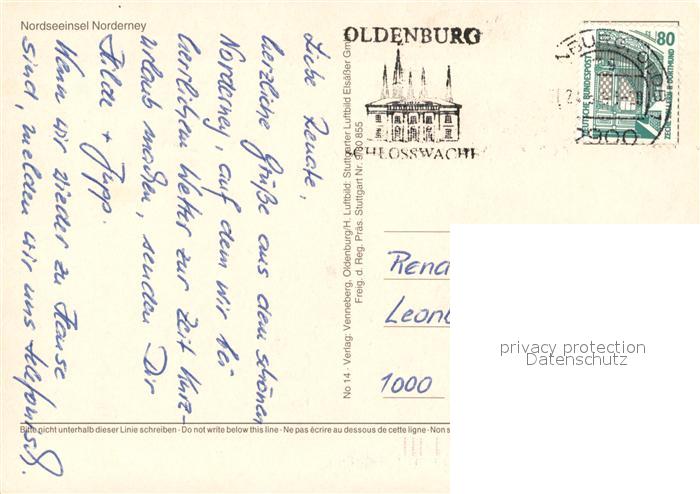 Nordseeinsel Norderney
Liebe Renate,
herzliche Grüße aus dem schönen
Norderney, auf dem wir bei
herrlichem Wetter zur Zeit Kurz-
urlaub machen, senden Dir
Hilde + Jupp.
Wenn wir wieder zu Hause
sind, melden wir uns telefonisch.
No 14 · Verlag: Venneberg, Oldenburg/H. Luftbild: Stuttgarter Luftbild Elsäßer Gm
Freig. d. Reg. Präs. Stuttgart Nr. 9/80 855
OLDENBURG
SCHLOSSWACHE
80
DEUTSCHE BUNDESPOST
ZECHE ZOLLERN II DORTMUND
NBURG, OLDB
2900
Rena
Leon
1000
privacy protection
Datenschutz
Bitte nicht unterhalb dieser Linie schreiben · Do not write below this line · Ne pas écrire au dessous de cette ligne · Non s